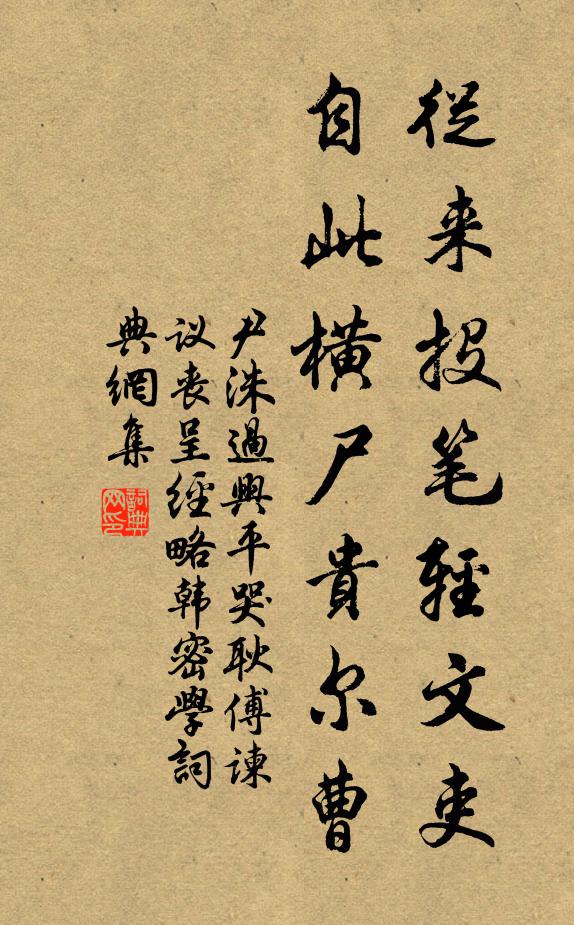 從来投笔輕文吏
自此横尸貴尔曹
尹洙過興平哭耿傅諫
议丧呈經略韩密學詞
典網集
詞典网印